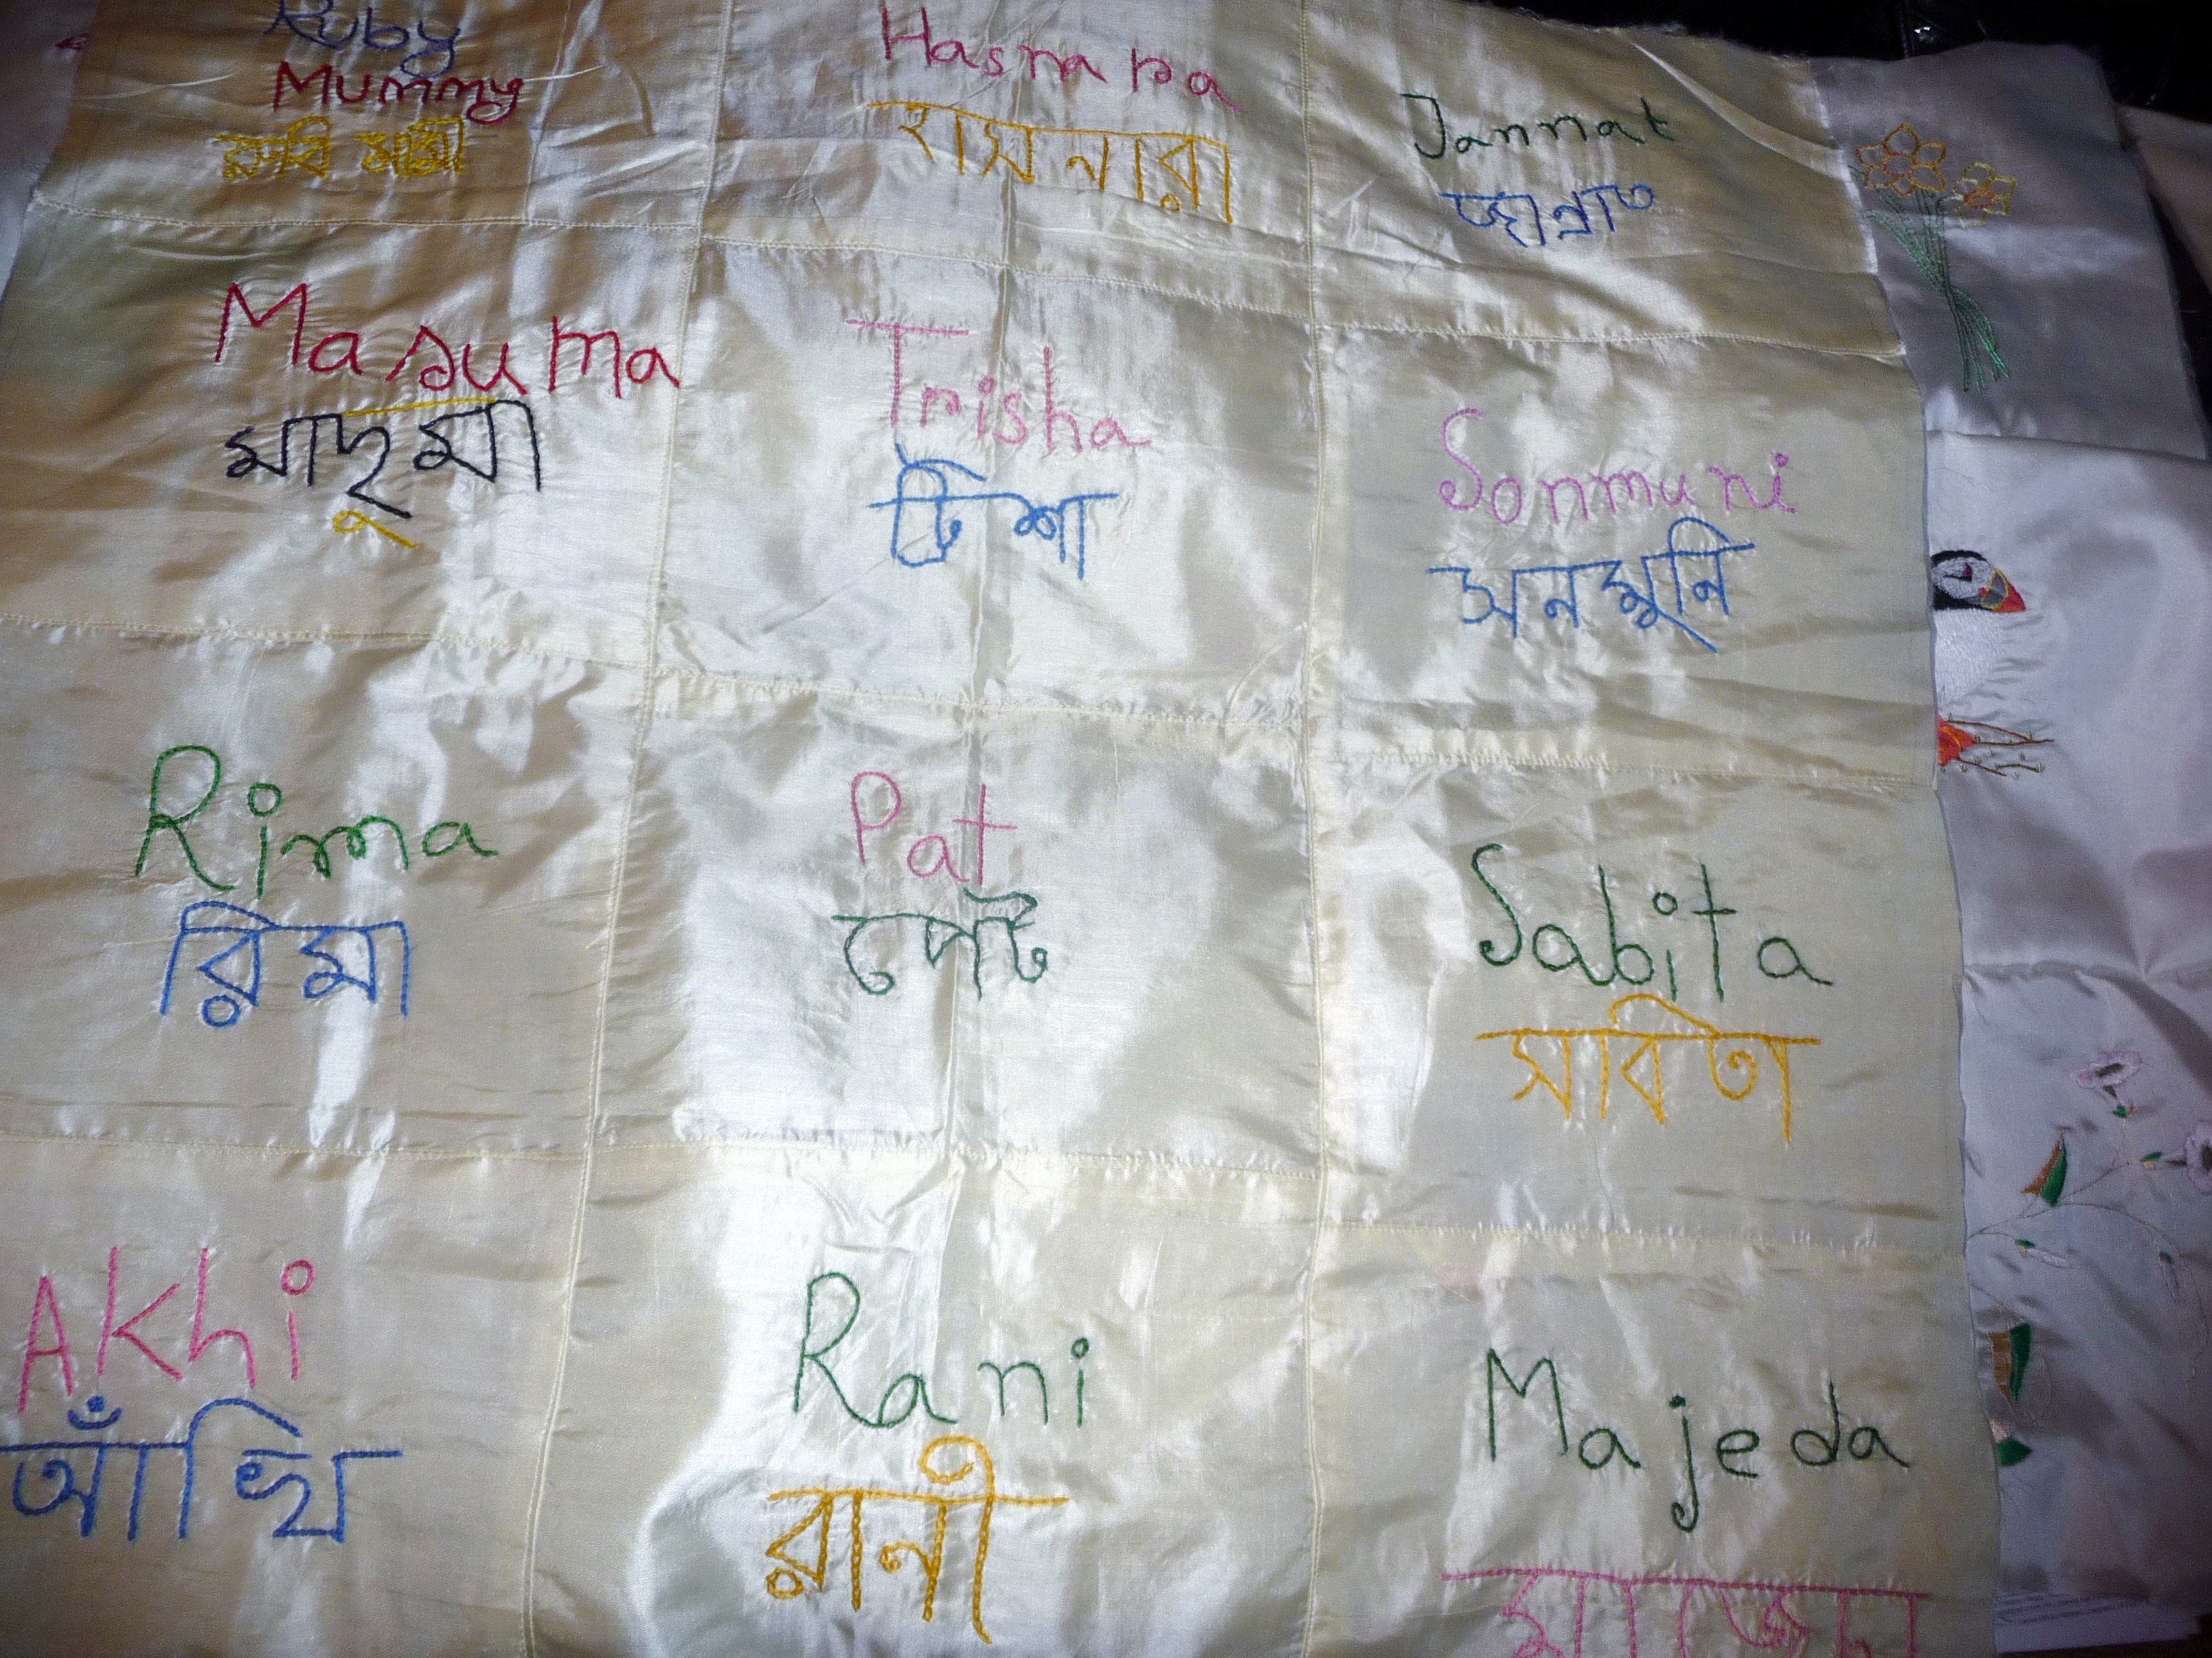 Ruby
Mummy
রুবি মামী
Hasnara
হাসনারা
Jannat
জান্নাত
Masuma
মাছুমা
Trisha
টিশা
Sonmuni
সনমুনি
Rima
রিমা
Pat
পেট
Sabita
সবিতা
Akhi
আঁখি
Rani
রানী
Majeda
মাজেদা